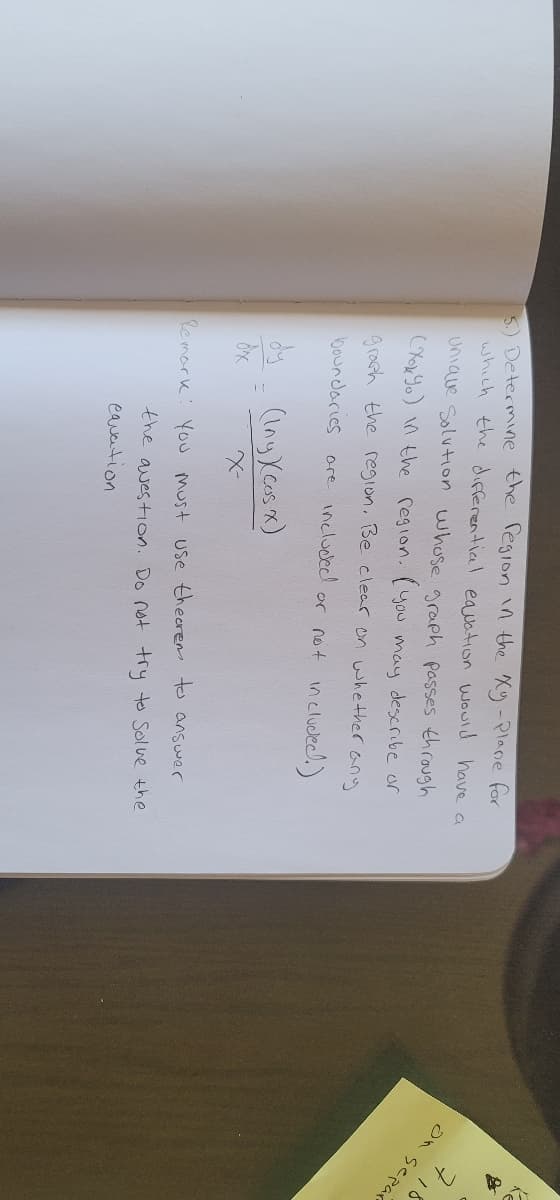 5.) Determine the region in the xy-plane for
which the differential equation would have a
unique solution whose graph passes through
(x₀,y₀) in the region. (you may describe or
graph the region. Be clear on whether any
boundaries are included or not included.)
dy/dx = (lny)(cosx)/x
Remark: You must use theorems to answer
the question. Do not try to solve the
equation
on